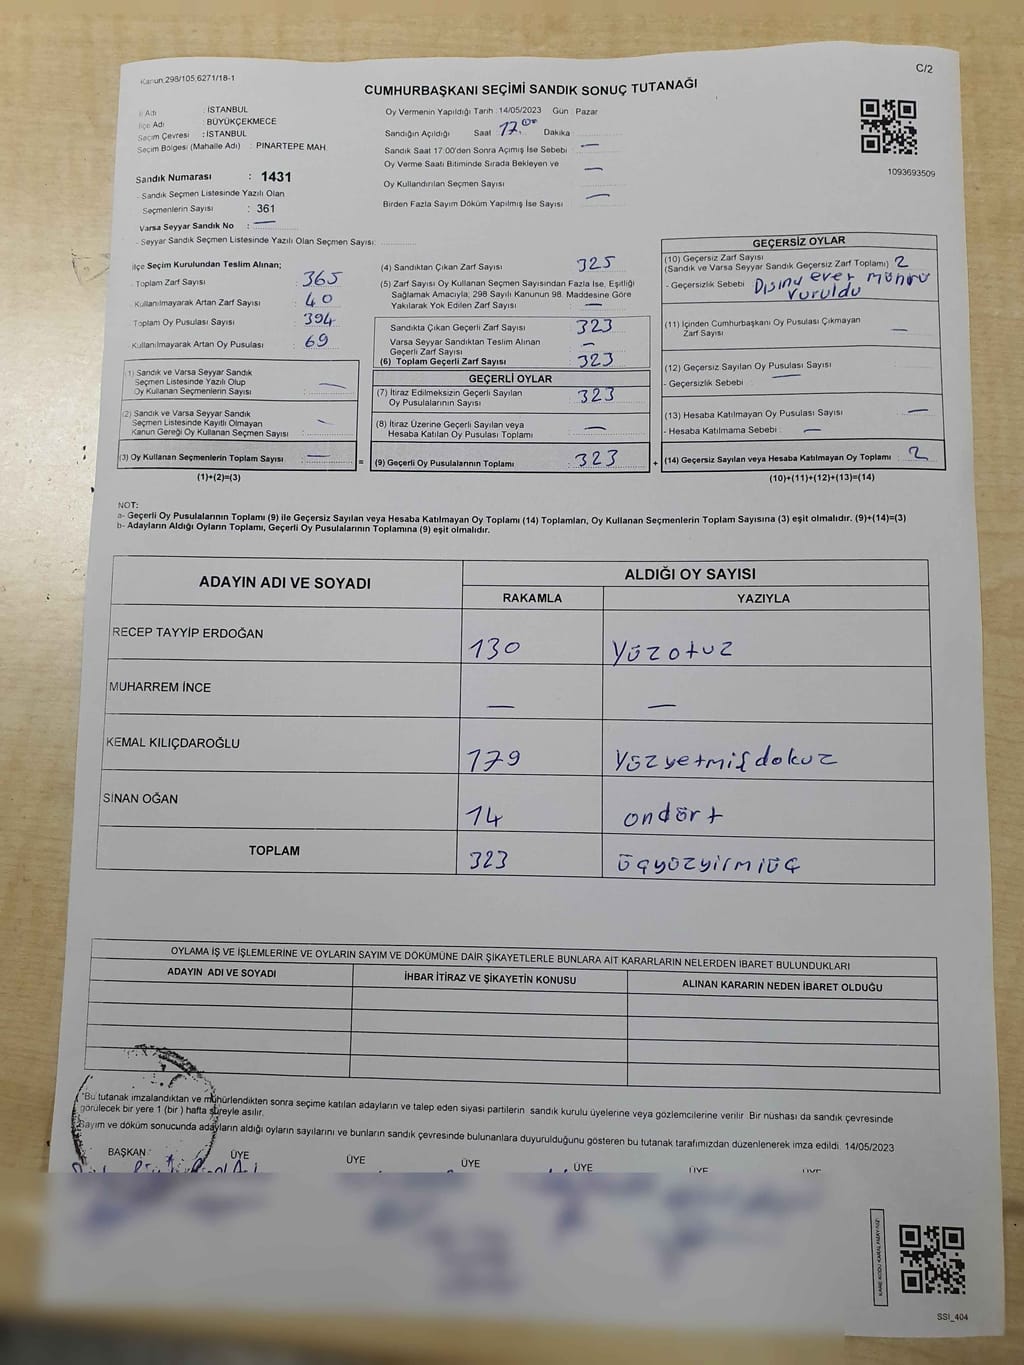 Kanun:298/105;6271/18-1
C/2
CUMHURBAŞKANI SEÇİMİ SANDIK SONUÇ TUTANAĞI
İl Adı : İSTANBUL
İlçe Adı : BÜYÜKÇEKMECE
Seçim Çevresi : İSTANBUL
Seçim Bölgesi (Mahalle Adı) : PINARTEPE MAH.
Sandık Numarası : 1431
- Sandık Seçmen Listesinde Yazılı Olan
Seçmenlerin Sayısı : 361
Varsa Seyyar Sandık No : —
- Seyyar Sandık Seçmen Listesinde Yazılı Olan Seçmen Sayısı:
Oy Vermenin Yapıldığı Tarih : 14/05/2023 Gün : Pazar
Sandığın Açıldığı Saat 17.00 Dakika
Sandık Saat 17:00'den Sonra Açımış İse Sebebi —
Oy Verme Saati Bitiminde Sırada Bekleyen ve —
Oy Kullandırılan Seçmen Sayısı
Birden Fazla Sayım Döküm Yapılmış İse Sayısı —
1093693509
İlçe Seçim Kurulundan Teslim Alınan;
Toplam Zarf Sayısı : 365
Kullanılmayarak Artan Zarf Sayısı : 40
Toplam Oy Pusulası Sayısı : 394
Kullanılmayarak Artan Oy Pusulası : 69
(1) Sandık ve Varsa Seyyar Sandık
Seçmen Listesinde Yazılı Olup
Oy Kullanan Seçmenlerin Sayısı : —
(2) Sandık ve Varsa Seyyar Sandık
Seçmen Listesinde Kayıtlı Olmayan
Kanun Gereği Oy Kullanan Seçmen Sayısı : —
(3) Oy Kullanan Seçmenlerin Toplam Sayısı : —
(1)+(2)=(3)
(4) Sandıktan Çıkan Zarf Sayısı : 325
(5) Zarf Sayısı Oy Kullanan Seçmen Sayısından Fazla İse, Eşitliği
Sağlamak Amacıyla; 298 Sayılı Kanunun 98. Maddesine Göre
Yakılarak Yok Edilen Zarf Sayısı : —
Sandıkta Çıkan Geçerli Zarf Sayısı : 323
Varsa Seyyar Sandıktan Teslim Alınan
Geçerli Zarf Sayısı : —
(6) Toplam Geçerli Zarf Sayısı : 323
GEÇERLİ OYLAR
(7) İtiraz Edilmeksizin Geçerli Sayılan
Oy Pusulalarının Sayısı : 323
(8) İtiraz Üzerine Geçerli Sayılan veya
Hesaba Katılan Oy Pusulası Toplamı : —
= (9) Geçerli Oy Pusulalarının Toplamı : 323
GEÇERSİZ OYLAR
(10) Geçersiz Zarf Sayısı
(Sandık ve Varsa Seyyar Sandık Geçersiz Zarf Toplamı) 2
- Geçersizlik Sebebi : Dışına evet mührü
vuruldu
(11) İçinden Cumhurbaşkanı Oy Pusulası Çıkmayan
Zarf Sayısı : —
(12) Geçersiz Sayılan Oy Pusulası Sayısı :
- Geçersizlik Sebebi : —
(13) Hesaba Katılmayan Oy Pusulası Sayısı : —
- Hesaba Katılmama Sebebi : —
+ (14) Geçersiz Sayılan veya Hesaba Katılmayan Oy Toplamı : 2
(10)+(11)+(12)+(13)=(14)
NOT:
a- Geçerli Oy Pusulalarının Toplamı (9) ile Geçersiz Sayılan veya Hesaba Katılmayan Oy Toplamı (14) Toplamları, Oy Kullanan Seçmenlerin Toplam Sayısına (3) eşit olmalıdır. (9)+(14)=(3)
b- Adayların Aldığı Oyların Toplamı, Geçerli Oy Pusulalarının Toplamına (9) eşit olmalıdır.
ADAYIN ADI VE SOYADI
ALDIĞI OY SAYISI
RAKAMLA YAZIYLA
RECEP TAYYİP ERDOĞAN 130 Yüzotuz
MUHARREM İNCE — —
KEMAL KILIÇDAROĞLU 179 Yüzyetmişdokuz
SİNAN OĞAN 14 ondört
TOPLAM 323 üçyüzyirmiüç
OYLAMA İŞ VE İŞLEMLERİNE VE OYLARIN SAYIM VE DÖKÜMÜNE DAİR ŞİKAYETLERLE BUNLARA AİT KARARLARIN NELERDEN İBARET BULUNDUKLARI
ADAYIN ADI VE SOYADI İHBAR İTİRAZ VE ŞİKAYETİN KONUSU ALINAN KARARIN NEDEN İBARET OLDUĞU
"Bu tutanak imzalandıktan ve mühürlendikten sonra seçime katılan adayların ve talep eden siyasi partilerin sandık kurulu üyelerine veya gözlemcilerine verilir. Bir nüshası da sandık çevresinde
görülecek bir yere 1 (bir) hafta süreyle asılır.
Sayım ve döküm sonucunda adayların aldığı oyların sayılarını ve bunların sandık çevresinde bulunanlara duyurulduğunu gösteren bu tutanak tarafımızdan düzenlenerek imza edildi. 14/05/2023
BAŞKAN ÜYE ÜYE ÜYE ÜYE ÜYE ÜYE
SSI_404